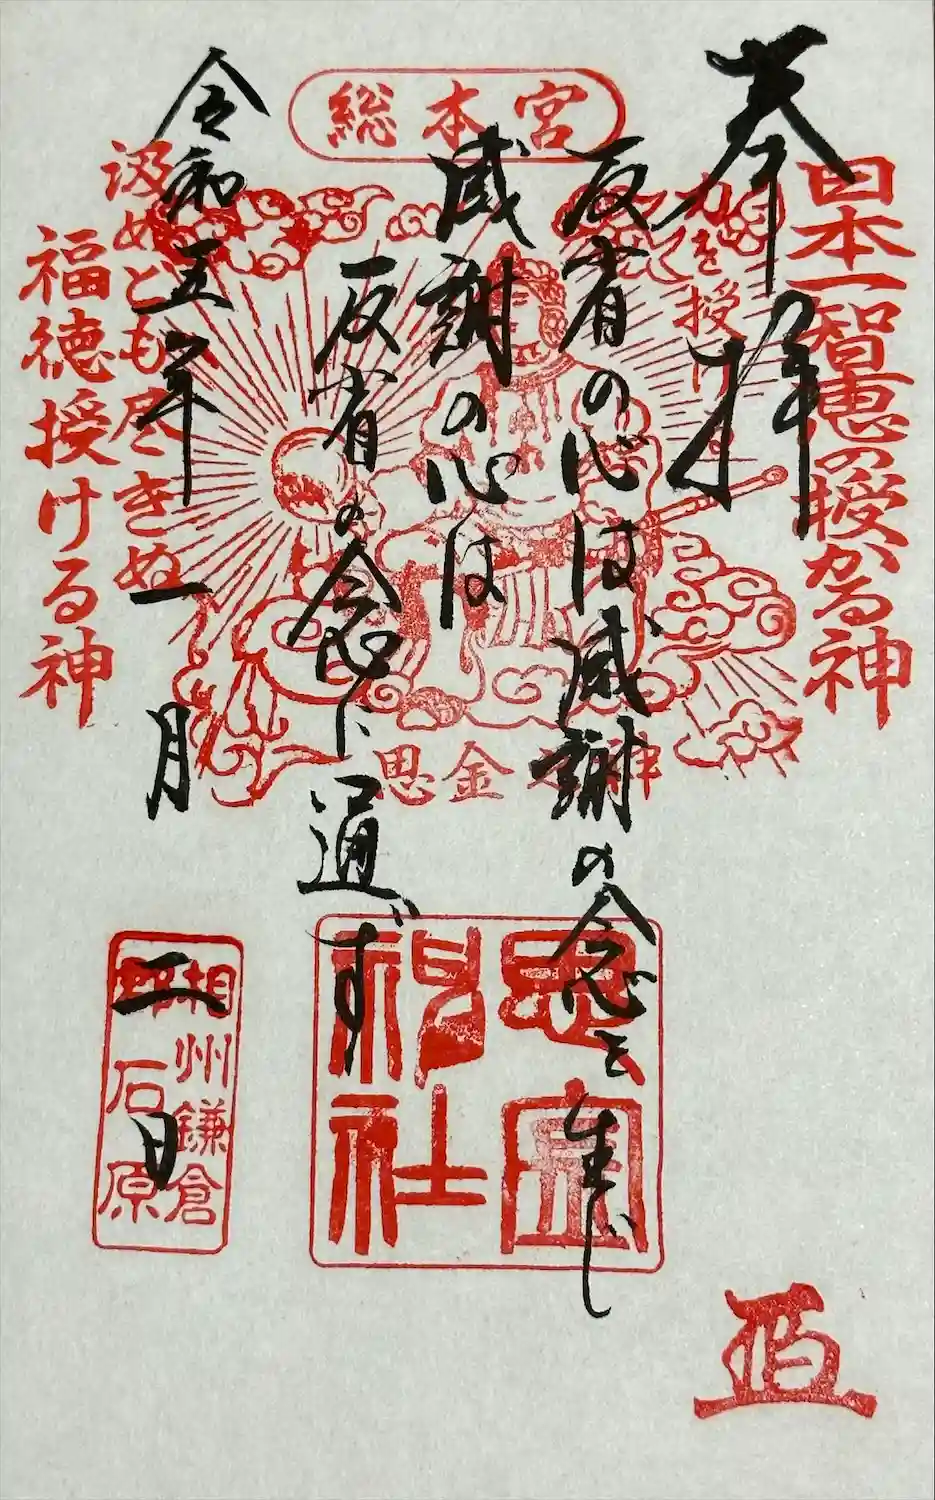 奉拝
日本一智恵の授かる神
力を授け
総本宮
反省の心は感謝の念を生じ
感謝の心は
反省の念に通ず
令和五年一月二日
汲めども尽きぬ
福徳授ける神
思金
神社
相州鎌倉
石原